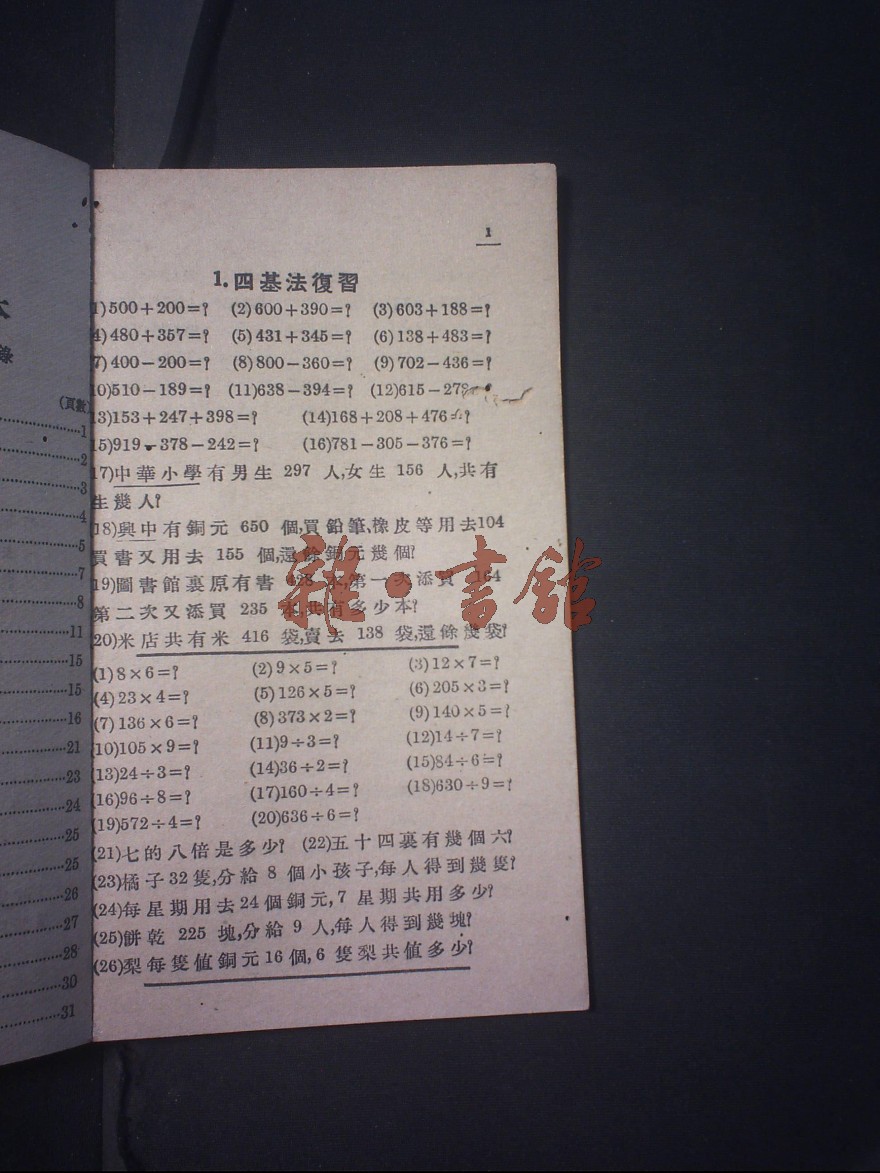 1
1.四基法復習
1)500+200=? (2)600+390=? (3)603+188=?
4)480+357=? (5)431+345=? (6)138+483=?
7)400-200=? (8)800-360=? (9)702-436=?
10)510-189=? (11)638-394=? (12)615-278
3)153+247+398=? (14)168+208+476=?
15)919-378-242=? (16)781-305-376=?
17)中華小學有男生 297 人,女生 156 人,共有
生幾人?
18)興中有銅元 650 個,買鉛筆,橡皮等用去104
買書又用去 155 個,還餘銅元幾個?
19)圖書館裏原有書 428 本,第一次添買 164
第二次又添買 235 本,共有多少本?
20)米店共有米 416 袋,賣去 138 袋,還餘幾袋?
(1)8×6=? (2)9×5=? (3)12×7=?
(4)23×4=? (5)126×5=? (6)205×3=?
(7)136×6=? (8)373×2=? (9)140×5=?
(10)105×9=? (11)9÷3=? (12)14÷7=?
(13)24÷3=? (14)36÷2=? (15)84÷6=?
(16)96÷8=? (17)160÷4=? (18)630÷9=?
(19)572÷4=? (20)636÷6=?
(21)七的八倍是多少? (22)五十四裏有幾個六?
(23)橘子32隻,分給 8 個小孩子,每人得到幾隻?
(24)每星期用去24個銅元,7 星期共用多少?
(25)餅乾 225 塊,分給 9 人,每人得到幾塊?
(26)梨每隻值銅元16個,6 隻梨共值多少?
雜·書館
(頁數)
1
2
3
4
5
7
8
11
15
15
16
21
23
24
25
25
26
27
28
30
31